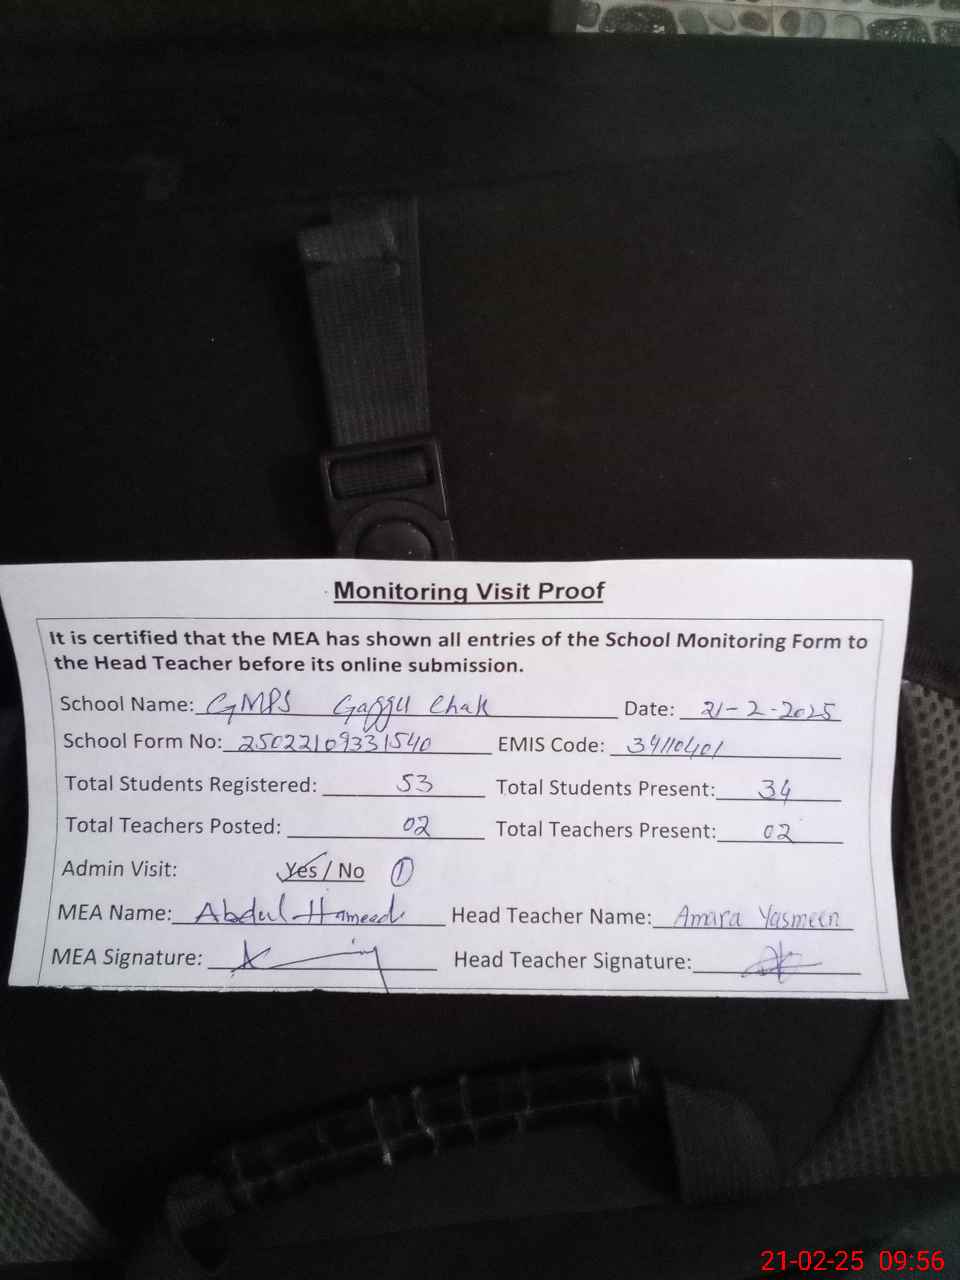 Monitoring Visit Proof
It is certified that the MEA has shown all entries of the School Monitoring Form to
the Head Teacher before its online submission.
School Name: GMPS Gaggu Chak Date: 21-2-2025
School Form No: 25022109331540 EMIS Code: 34110401
Total Students Registered: 53 Total Students Present: 34
Total Teachers Posted: 02 Total Teachers Present: 02
Admin Visit: Yes / No 1
MEA Name: Abdul Hameed Head Teacher Name: Amara Yasmeen
MEA Signature: Head Teacher Signature:
21-02-25 09:56